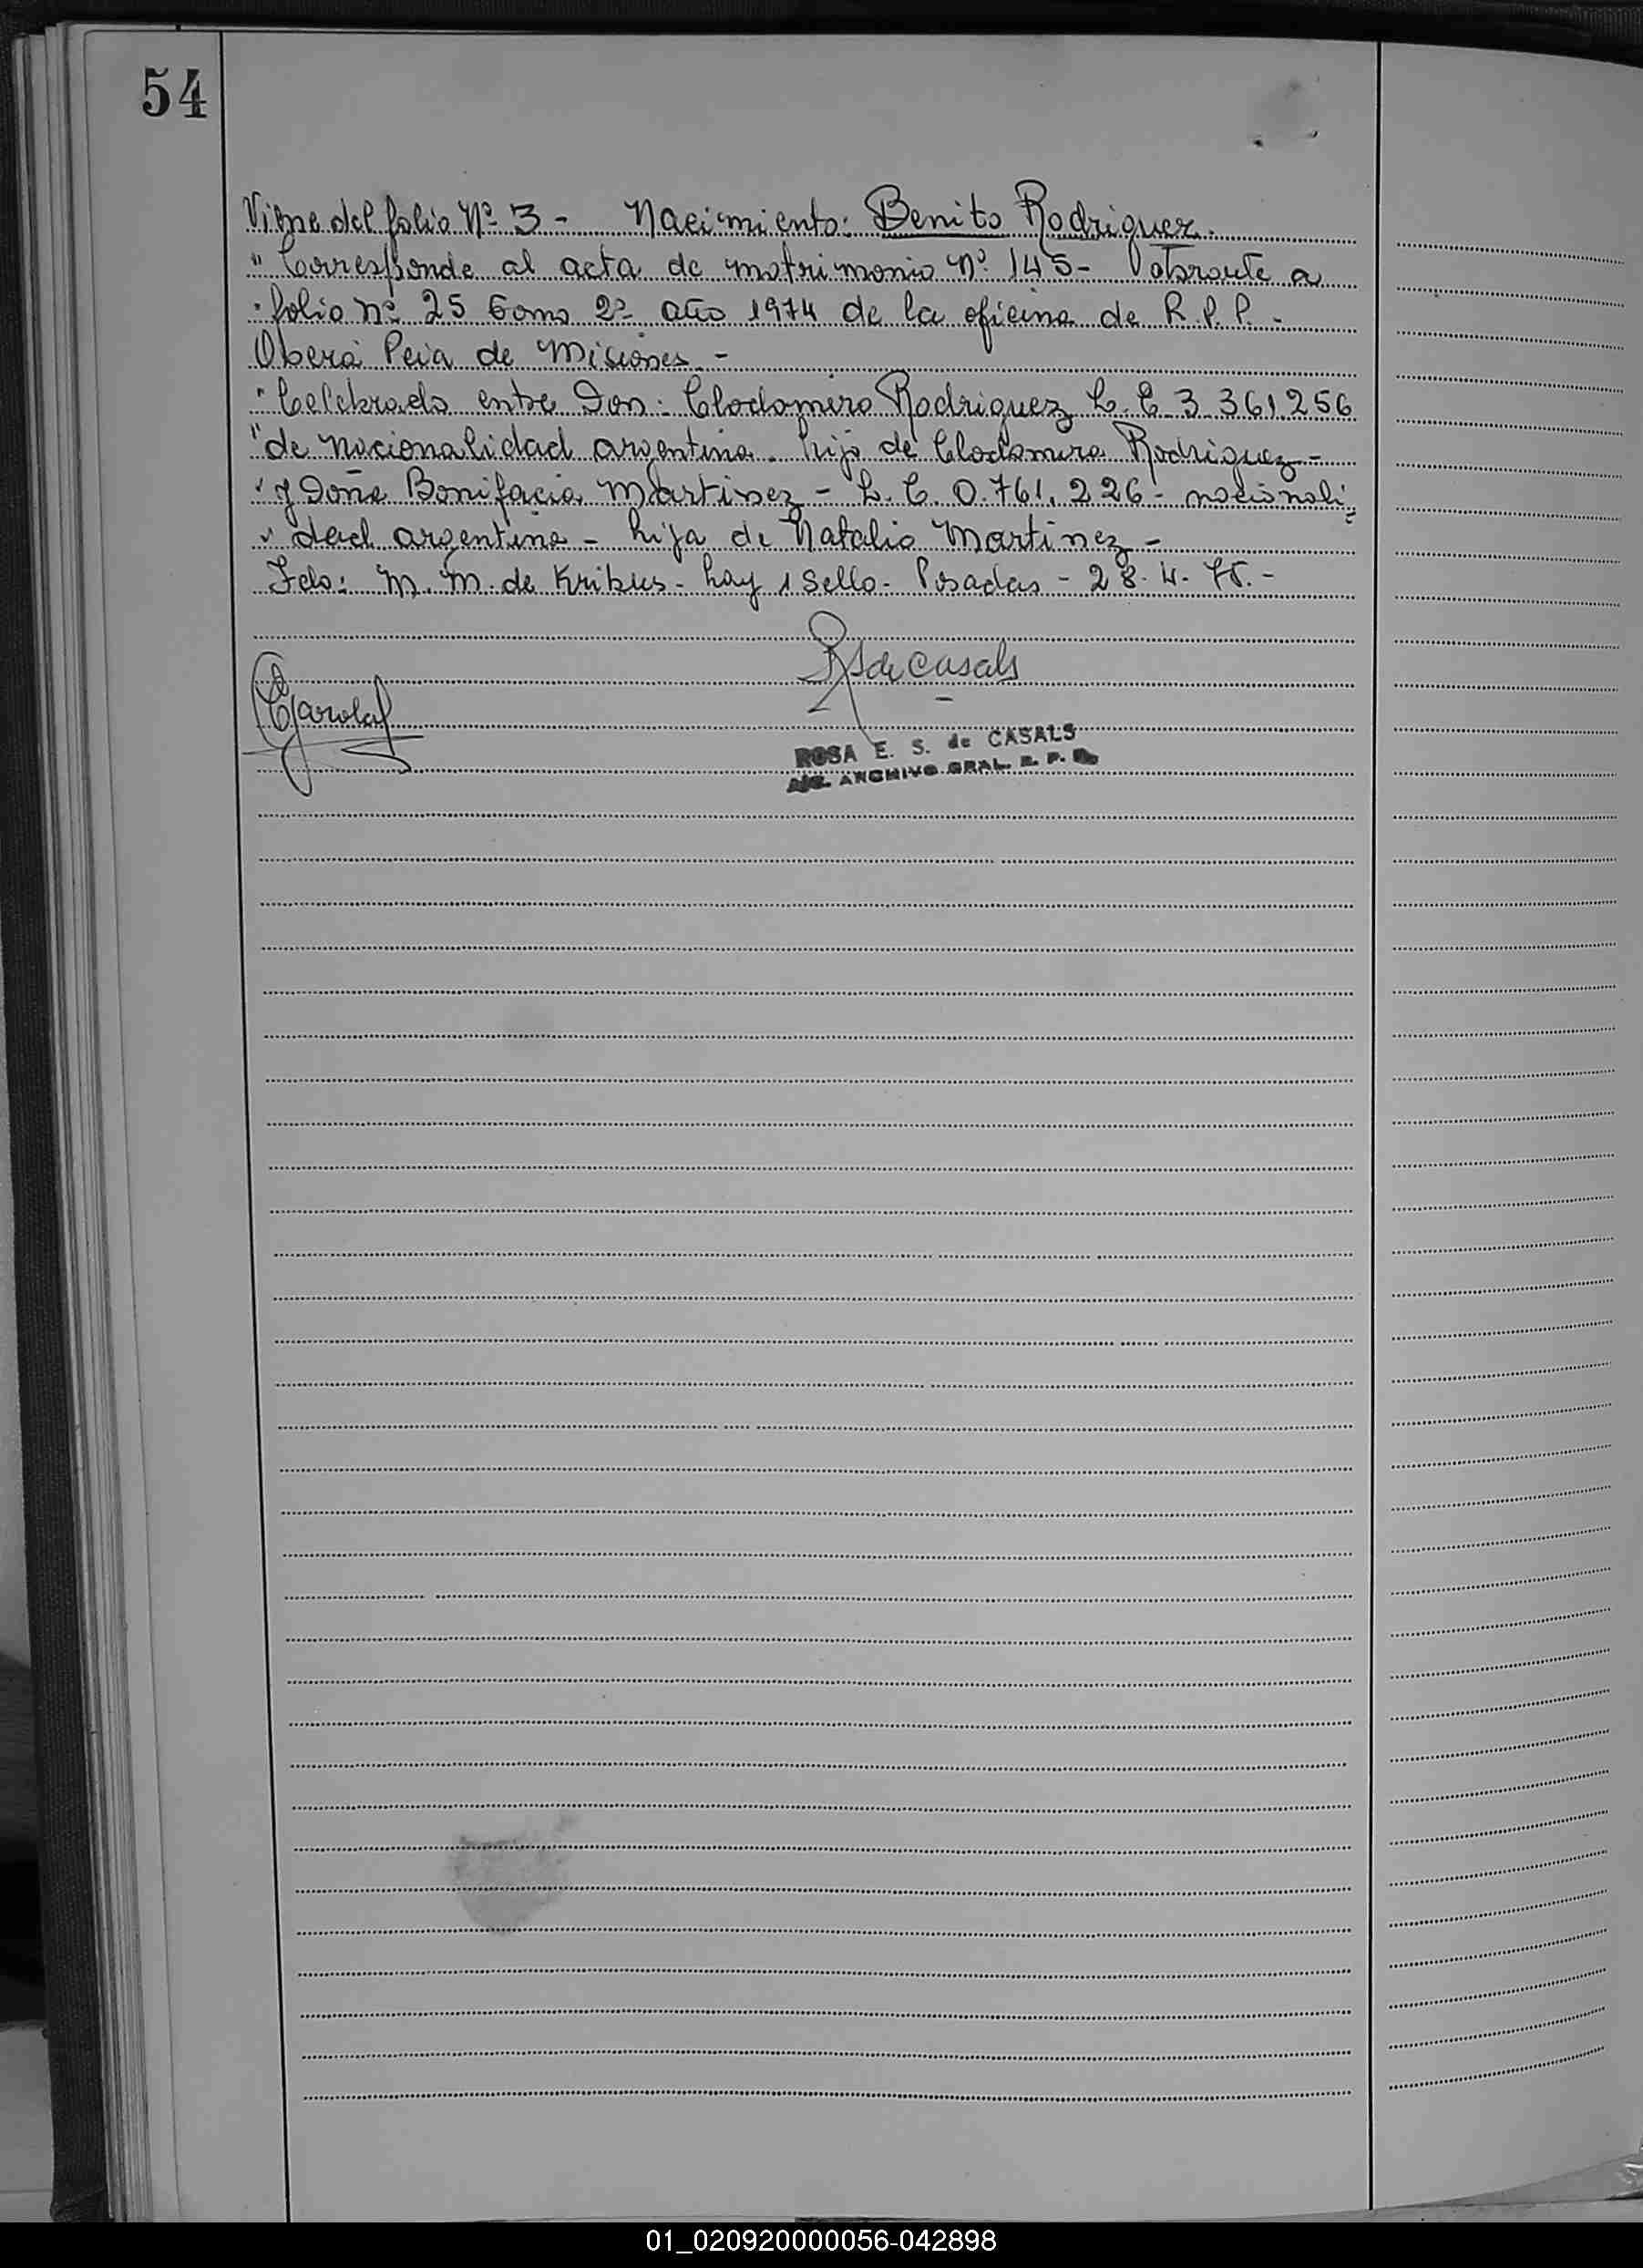 54
Viene del folio Nº 3 - Nacimiento: Benito Rodriguez.
" Corresponde al acta de matrimonio Nº 145 - Obrante a
" folio nº 25 tomo 2º año 1974 de la oficina de R.P.P. -
Oberá Pcia de Misiones. -
" Celebrado entre Don: Clodomiro Rodriguez L. E 3.361.256
" de nacionalidad argentina. hijo de Clodomira Rodriguez -
" y Doña Bonifacia Martinez - L. C. 0.761.226 - nacionali=
" dad argentina - hija de Natalio Martinez -
Fdo: M. M. de Kribus - hay 1 sello - Posadas - 28. 4. 75. -
de Casals
ROSA E. S. de CASALS
ARCHIVO GRAL. R. P. P.
01_020920000056-042898